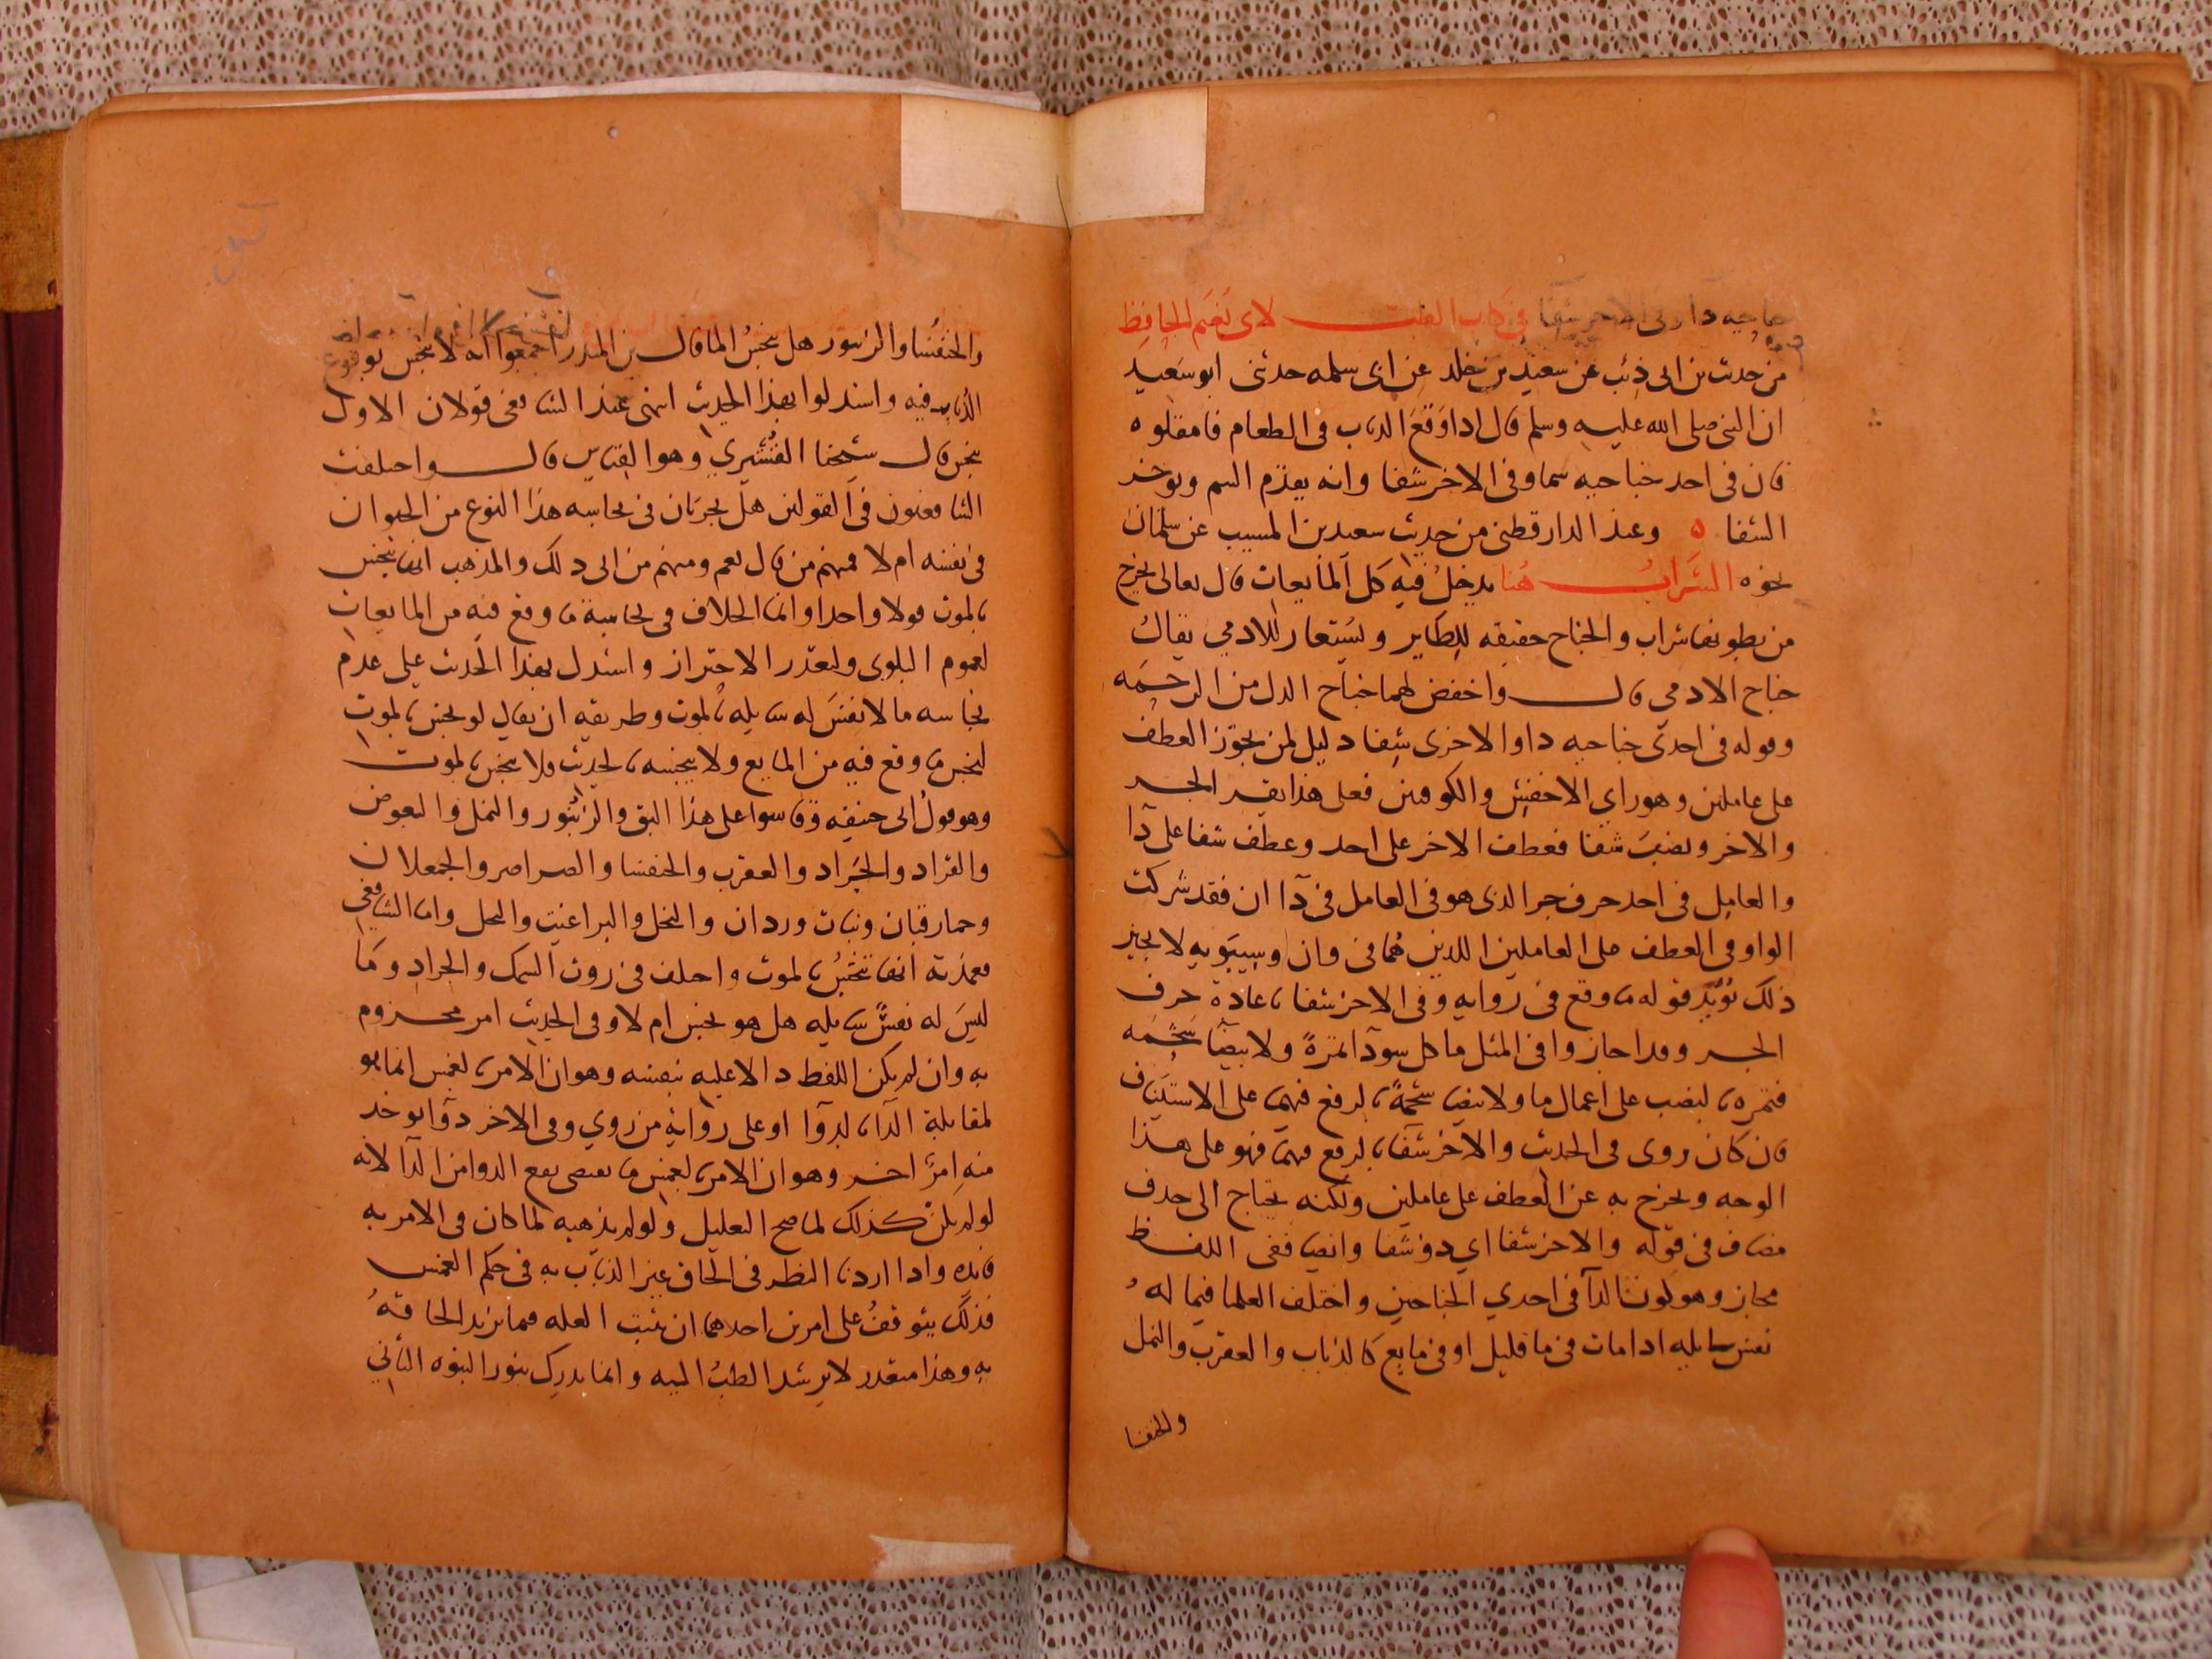 جناحيه دا وفى الاخر شفا فى كتاب الطب لابى نعيم الحافظ
من حديث بن ابى ذئب عن سعيد بن خلد عن ابى سلمه حدثنى ابو سعيد
ان النبى صلى الله عليه وسلم قال ادا وقع الدباب فى الطعام فامقلوه
فان فى احد جناحيه سما وفى الاخر شفا وانه يقدم السم ويوخر
الشفا ٥ وعند الدارقطنى من حديث سعيد بن المسيب عن سلمان
نحوه الشراب هنا يدخل فيه كل المايعات قال تعالى يخرج
من بطونها شراب والجناح حقيقه للطاير ويستعار للادمي يقال
جناح الادمى قال واخفض لهما جناح الدل من الرحمه
وقوله فى احدى جناحيه دا والاخرى شفا دليل لمن يجوز العطف
على عاملين وهو راي الاخفش والكوفيين فعلى هذا يقرا بجر
والاخر ونصب شفا فعطف الاخر على احد وعطف شفا على دآ
والعامل فى احد حرف جر الذى هو فى العامل فى دآ ان فقد شركت
الواو فى العطف على العاملين اللذين هما فى وان وسيبويه لا يجيز
ذلك يؤيد قوله ما وقع فى روايه وفى الاخر شفا باعادة حرف
الجر وقد اجازوا فى المثل ما كل سودآ تمرة ولا بيضآ شحمه
فتمره بالنصب على اعمال ما ولا بيضا شحمة بالرفع فيهما على الاستيناف
فان كان روى فى الحديث والاخر شفآ بالرفع فيهما فهو على هذا
الوجه ويخرج به عن العطف على عاملين ولكنه يحتاج الى حذف
مضاف فى قوله والاخر شفا اي ذو شفا وايضا ففى اللفظ
مجاز وهو كون الدآ فى احدي الجناحين واختلف العلما فيما له
نفس سايله ادا مات فى ما قليل او فى مايع كالذباب والعقرب والنمل
والخنفسا
والخنفسا والزنبور هل ينجس الما قال بن المندر اجمعوا انه لا ينجس بوقوع
الذباب فيه واستدلوا بهذا الحديث انتهى عند الشافعى قولان الاول
ينجس قال شيخنا القشيري وهو القياس قال واختلفت
الشافعيون فى القولين هل يجريان فى نجاسه هذا النوع من الحيوان
فى نفسه ام لا فمنهم من قال نعم ومنهم من ابى دلك والمذهب انها تنجس
بالموت قولا واحدا وانما الخلاف فى نجاسة ما وقع فيه من المايعات
لعموم البلوى ولتعدر الاحتراز واستدل بهذا الحديث على عدم
نجاسه ما لا نفس له سايله بالموت وطريقه ان يقال لو نجس بالموت
لنجس ما وقع فيه من المايع ولا ينجسه بالحديث ولا ينجس بالموت
وهو قول ابى حنيفه وقاسوا على هذا البق والزنبور والنمل والبعوض
والقراد والجراد والعقرب والخنفسا والصراصر والجعلان
وحمار قبان وبنات وردان والنحل والبراغيت والنمل واما الشافعى
فعنده انها تنجس بالموت واختلف فى روث السمك والجراد وما
ليس له نفس سايله هل هو نجس ام لا وفى الحديث امر مجزوم
به وان لم يكن اللفظ دالا عليه بنفسه وهو ان الامر بالغمس انما هو
لمقابلة الدآ بالدوآ او على رواية من روي وفى الاخر دوآ يوخد
منه امر اخر وهو ان الامر بالغمس ما يقتضى نفع الدوا من الدآ لانه
لو لم يكن كذلك لما صح التعليل ولو لم يذهبه لما كان فى الامر به
فايده وادا اردنا النظر فى الحاق غير الذباب به فى حكم الغمس
فذلك يتوقف على امرين احدهما ان يثبت العله فيما نريد الحاقه
به وهذا متعدر لا يرشد الطب اليه وانما يدرك بنور النبوه الثانى